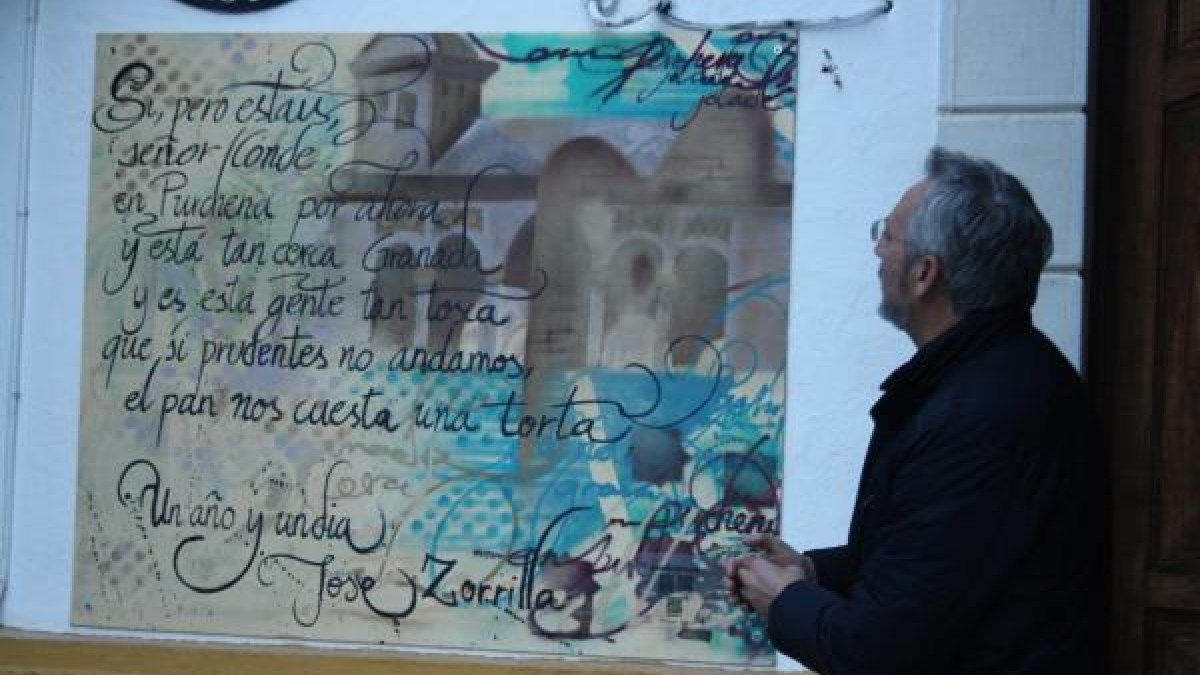 Sí, pero estais,
señor Conde
en Purchena por ahora
y está tan cerca Granada
y es esta gente tan toxa
que, si prudentes no andamos,
el pan nos cuesta una torta
Un año y un dia
Jose Zorrilla